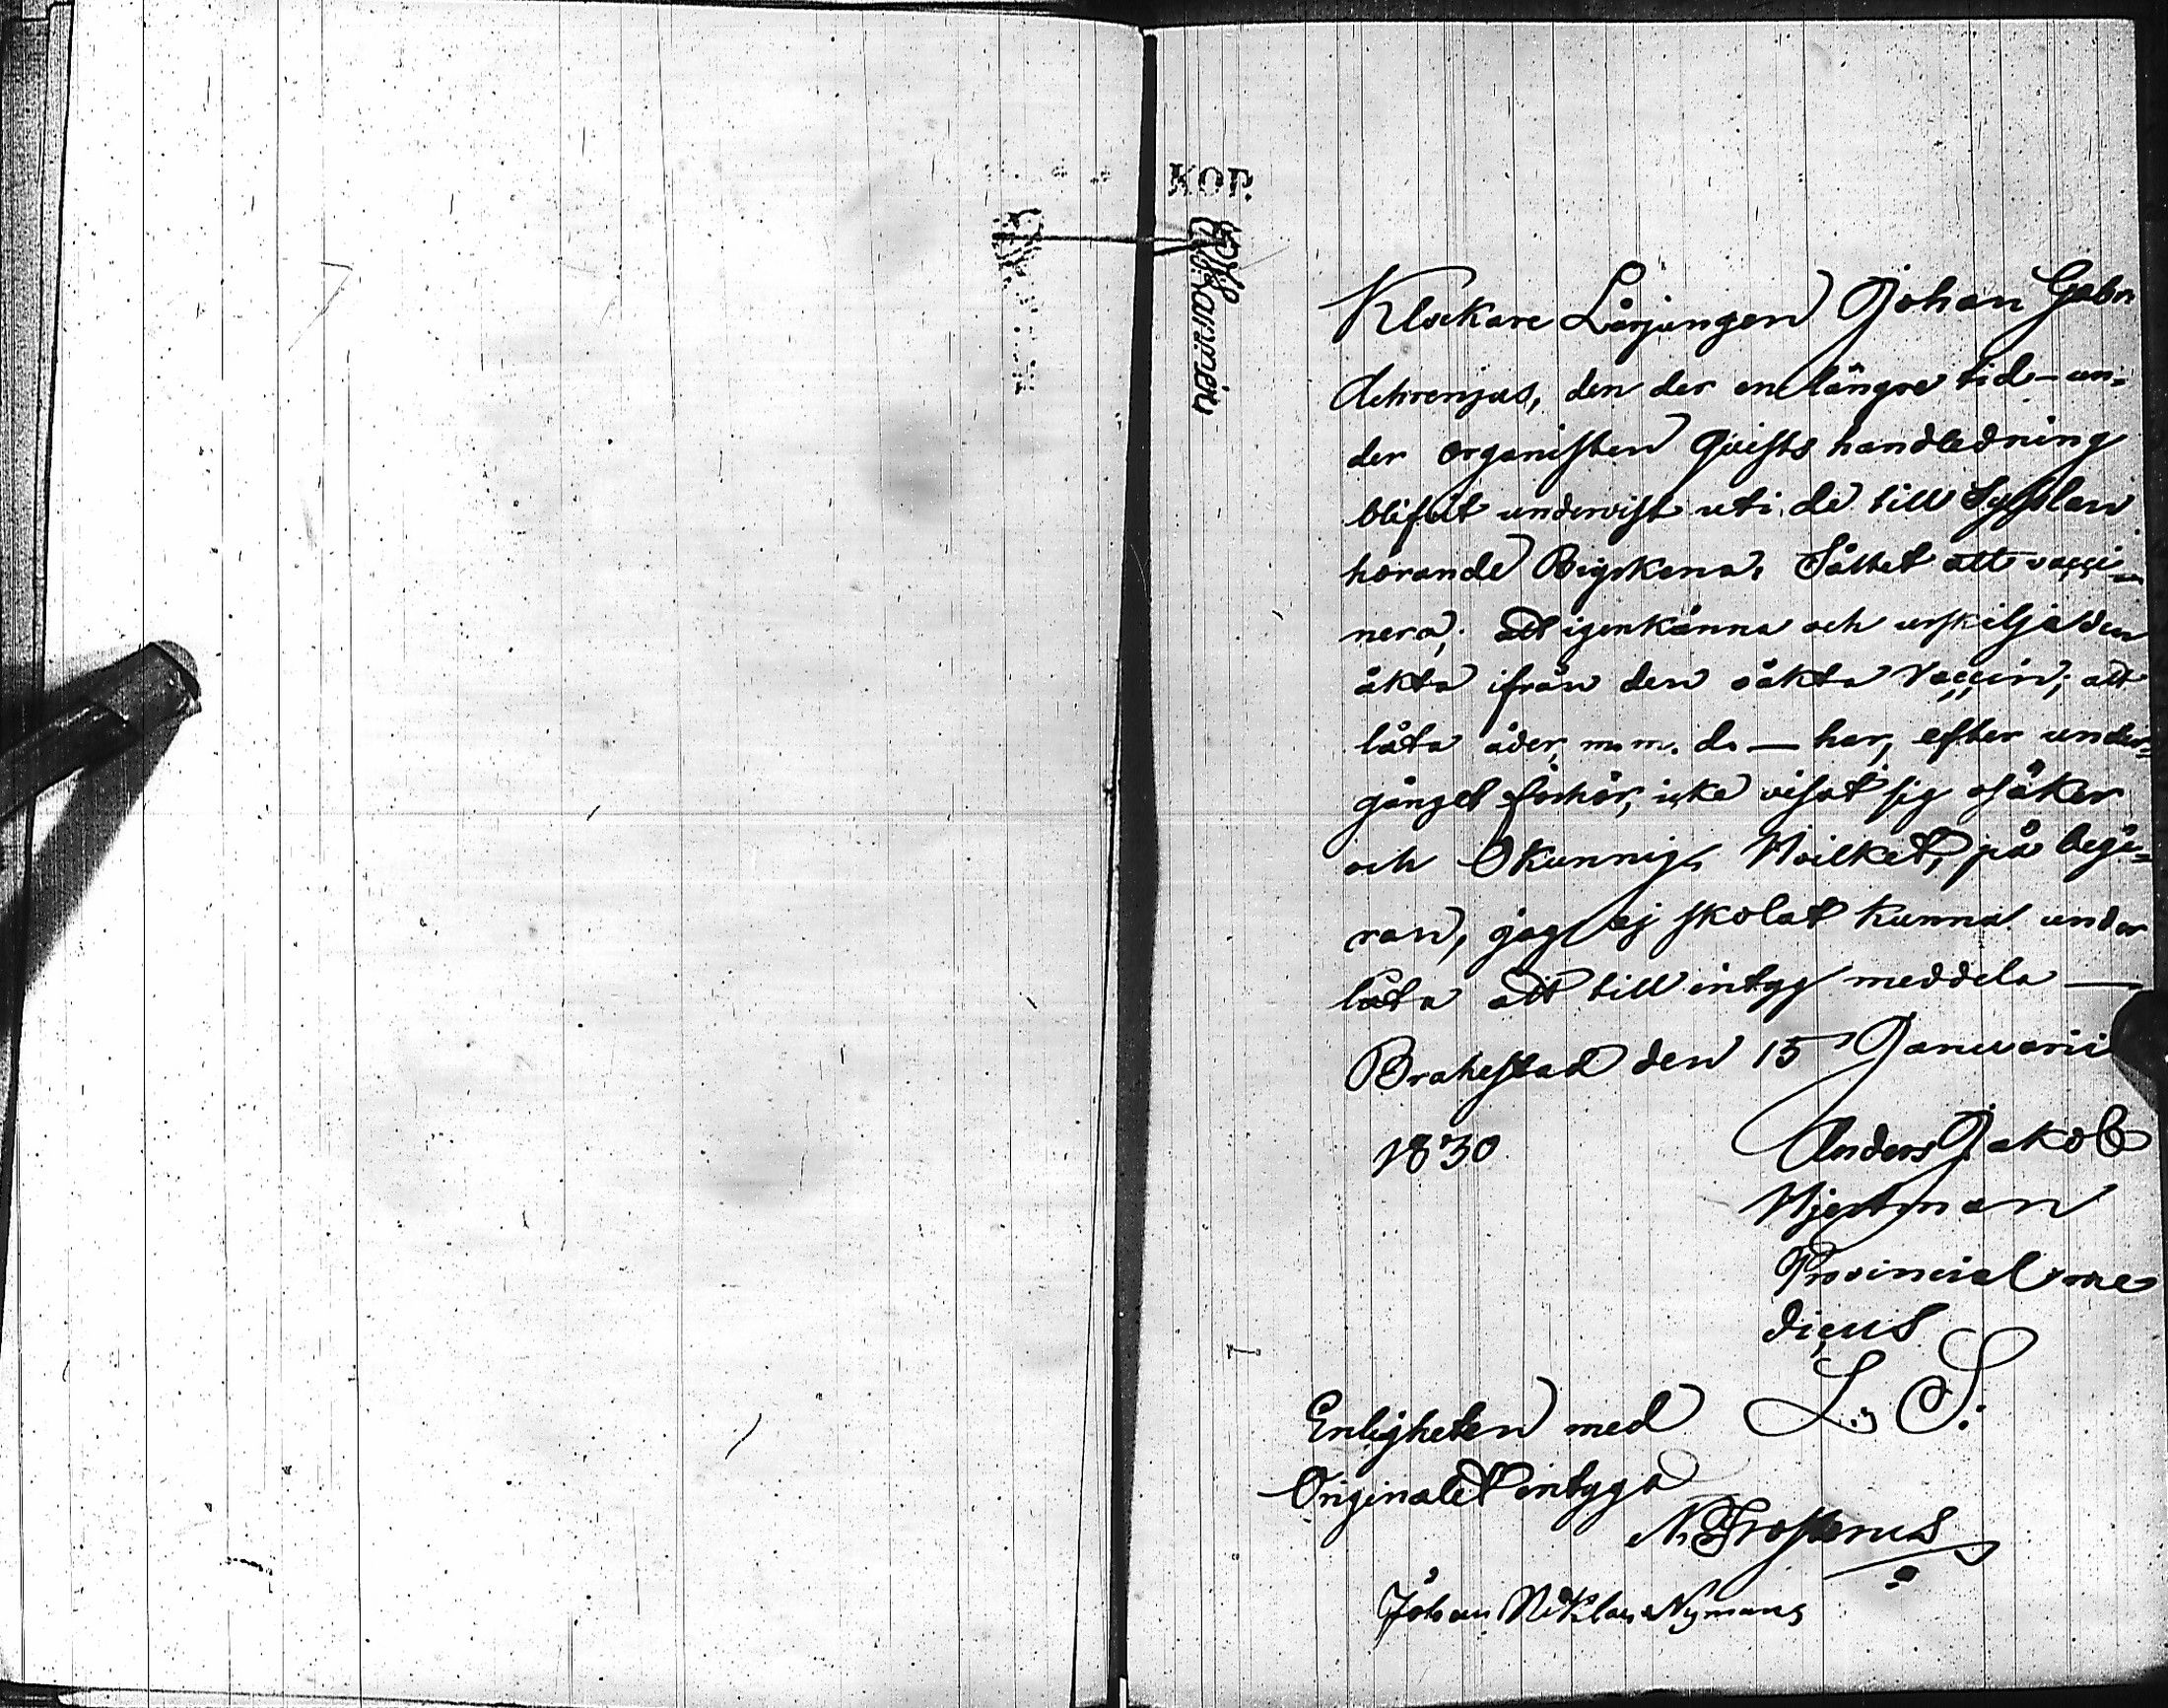 KOP.
Klockare Lärjungen Johan Gabr
Aehrenjus, den der en längre tid un-
der organisten Qvists handledning
blifvit undervist uti de till Sysslan
hörande Bigökena, Sättet att vacci-
nera, att igenkänna och urskilja den
äkta ifrån den oäkta Vaccin; att
låta åder, m. m. d. — har, efter under-
gånget förhör, icke visat sig osäker
och Okunnig. Hvilket, på begä-
ran, jag ej skolat kunna under
låta att till intyg meddela —
Brahestad den 15 Januarii
1830. Anders Jakob
Hjertman
Provincial me
dicus
L. S.
Enligheten med
Originalet intyga
N. Frosterus
Johan Niklas Nyman